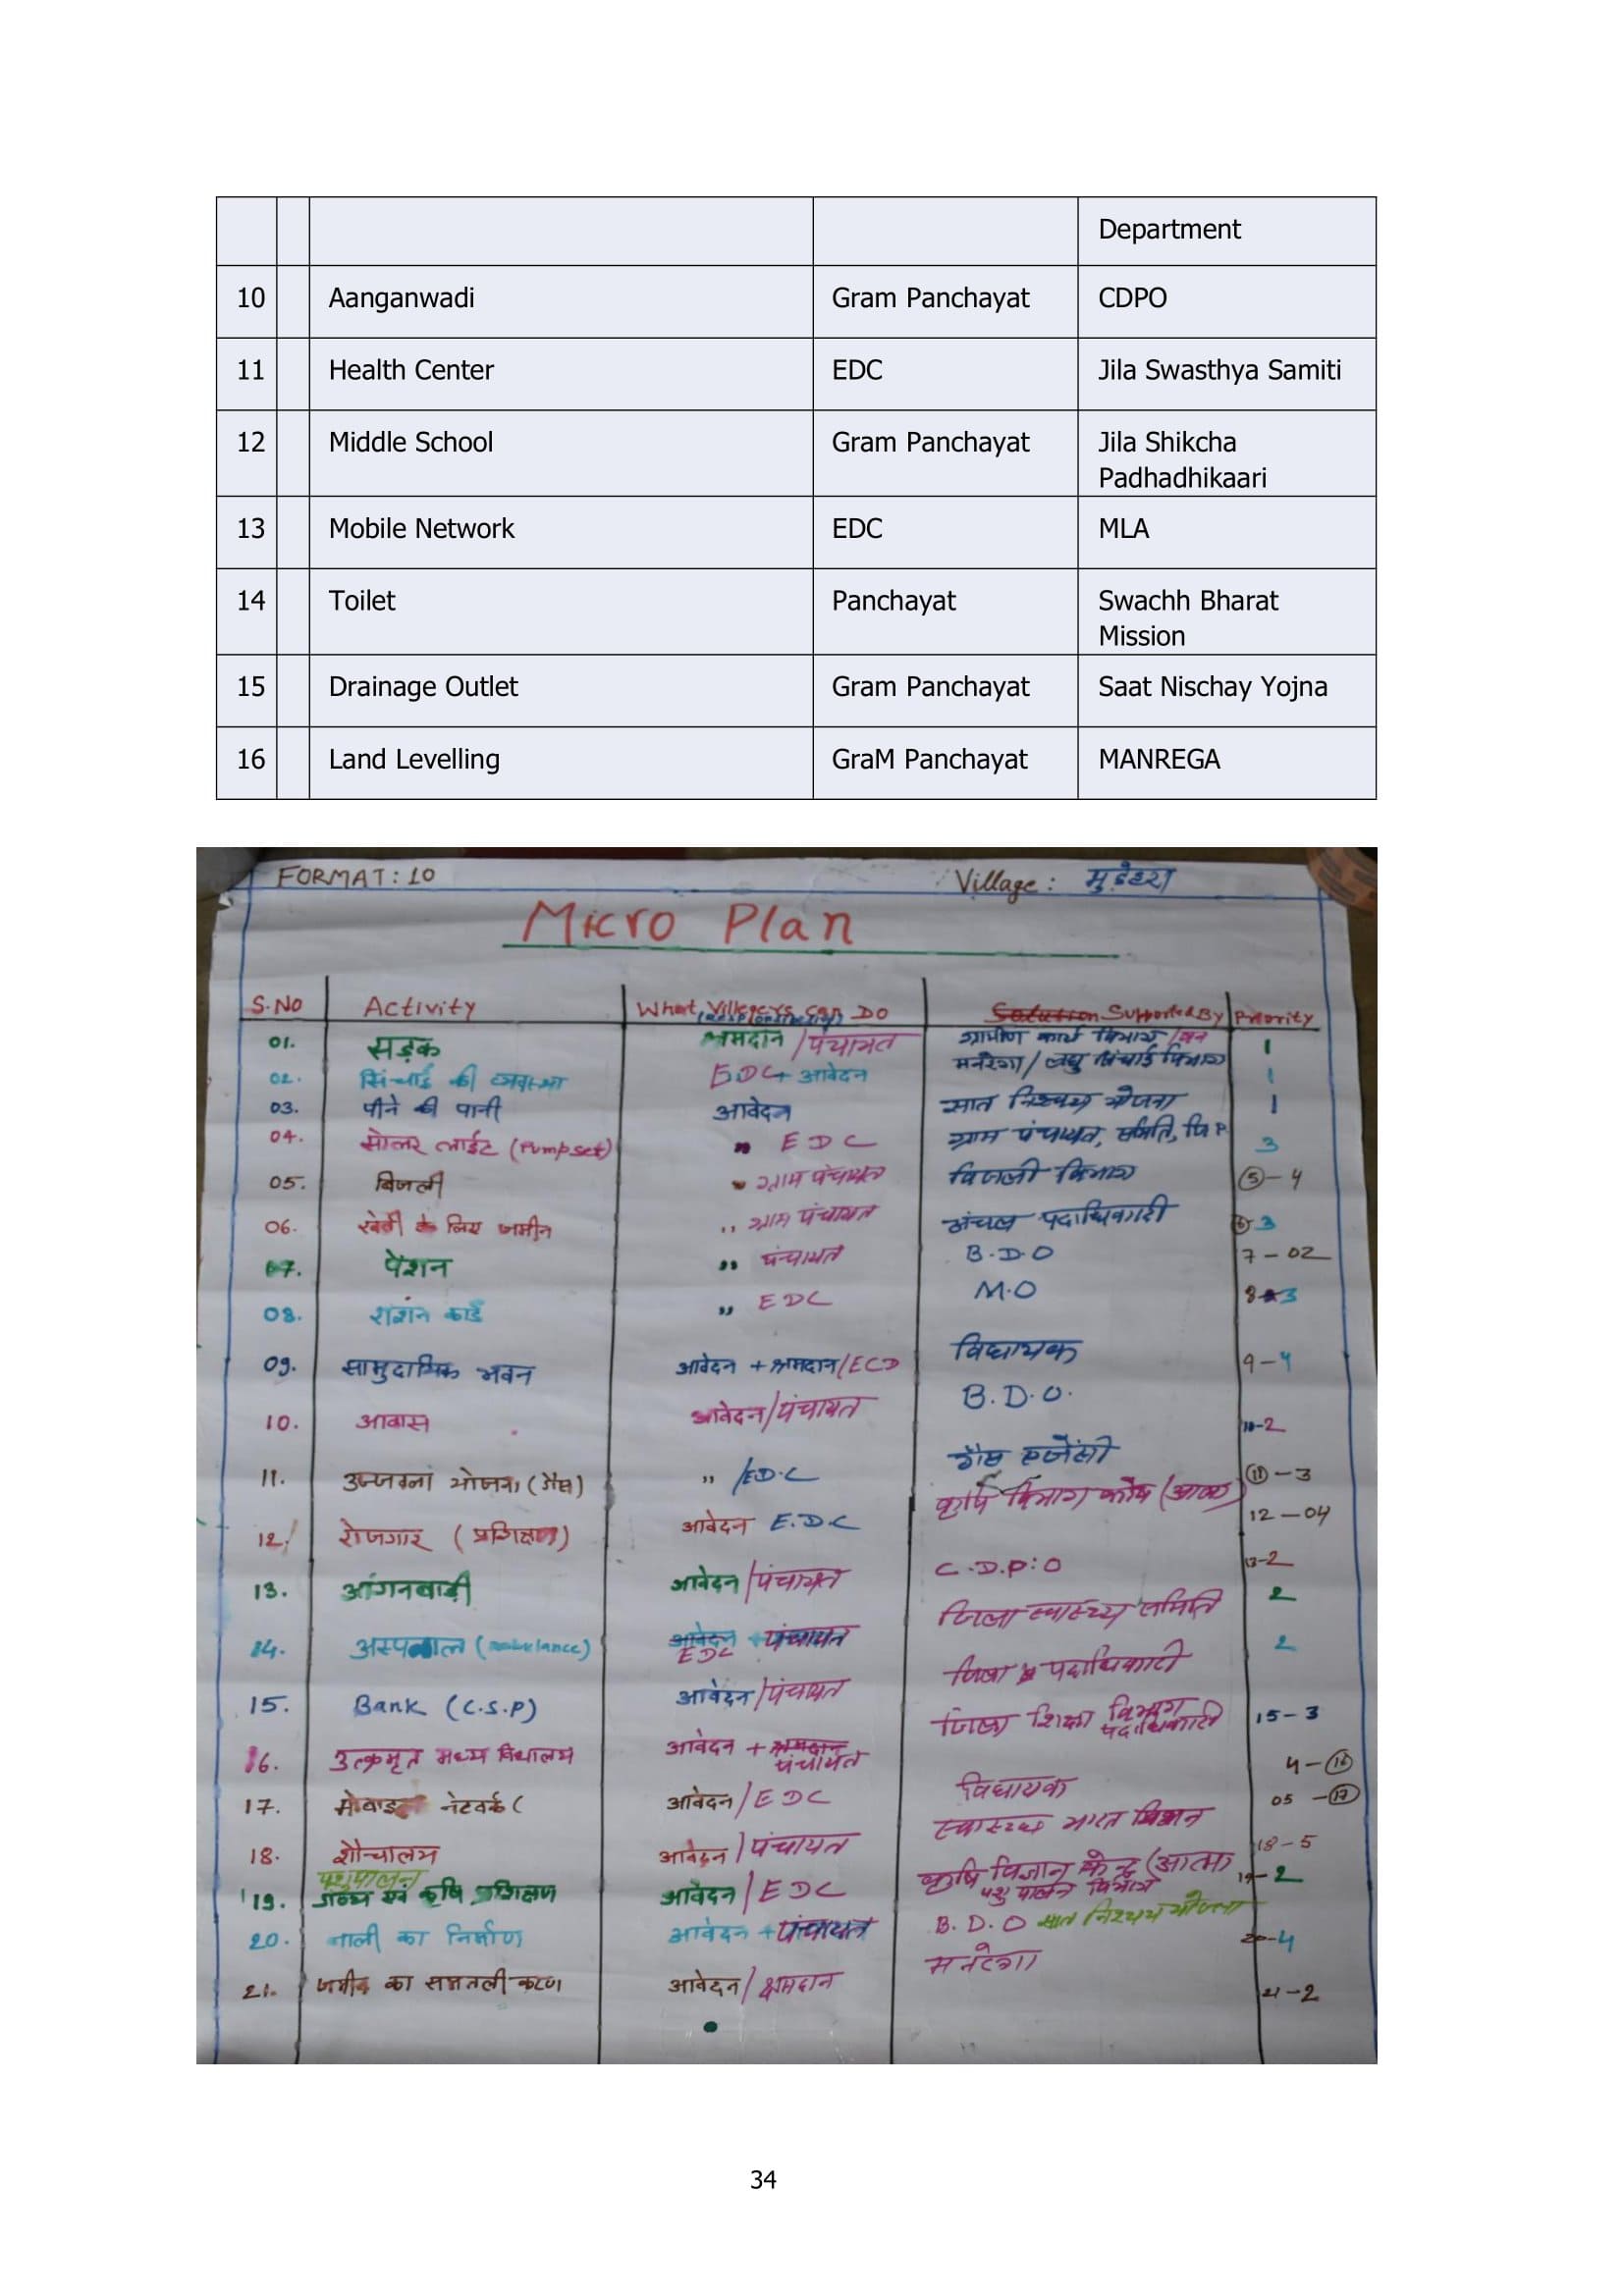 Department
10 Aanganwadi Gram Panchayat CDPO
11 Health Center EDC Jila Swasthya Samiti
12 Middle School Gram Panchayat Jila Shikcha
Padhadhikaari
13 Mobile Network EDC MLA
14 Toilet Panchayat Swachh Bharat
Mission
15 Drainage Outlet Gram Panchayat Saat Nischay Yojna
16 Land Levelling GraM Panchayat MANREGA
FORMAT: 10 Village:
Micro Plan
S.No Activity What Villegers can Do Supported By Priority
01. सड़क श्रमदान /पंचायत ग्रामीण कार्य विभाग /वन 1
02. सिंचाई की व्यवस्था EDC + आवेदन मनरेगा/ लघु सिंचाई विभाग 1
03. पीने की पानी आवेदन सात निश्चय योजना 1
04. सोलर लाईट (Pumpset) " EDC ग्राम पंचायत, समिति, 3
05. बिजली " ग्राम पंचायत बिजली विभाग 5-4
06. खेती के लिए जमीन " ग्राम पंचायत अंचल पदाधिकारी 3
07. पेंशन " पंचायत B.D.O 7-02
08. राशन कार्ड " EDC M.O 8-3
09. सामुदायिक भवन आवेदन + श्रमदान/ECD विधायक 9-4
10. आवास आवेदन/पंचायत B.D.O. 10-2
11. उज्जवला योजना (गैस) " /E.D.C गैस एजेंसी 11-3
12. रोजगार (प्रशिक्षण) आवेदन E.D.C कृषि विभाग 12-04
13. आंगनबाड़ी आवेदन/पंचायत C.D.P.O 13-2
2
14. अस्पताल (ambulance) आवेदन + पंचायत जिला स्वास्थ्य समिति 2
EDC
15. Bank (C.S.P) आवेदन/पंचायत जिला पदाधिकारी 15-3
16. उत्क्रमित मध्य विद्यालय आवेदन + श्रमदान जिला शिक्षा विभाग 4-16
पंचायत पदाधिकारी
17. मोबाइल नेटवर्क आवेदन/EDC विधायक 05-17
18. शौचालय आवेदन/पंचायत भारत मिशन 18-5
पशुपालन
19. एवं कृषि प्रशिक्षण आवेदन/EDC कृषि विज्ञान केन्द्र (आत्मा 19-2
पशु पालन विभाग
20. नाली का निर्माण आवेदन + पंचायत B.D.O सात निश्चय योजना 20-4
21. जमीन का समतलीकरण आवेदन/श्रमदान मनरेगा 21-2
34